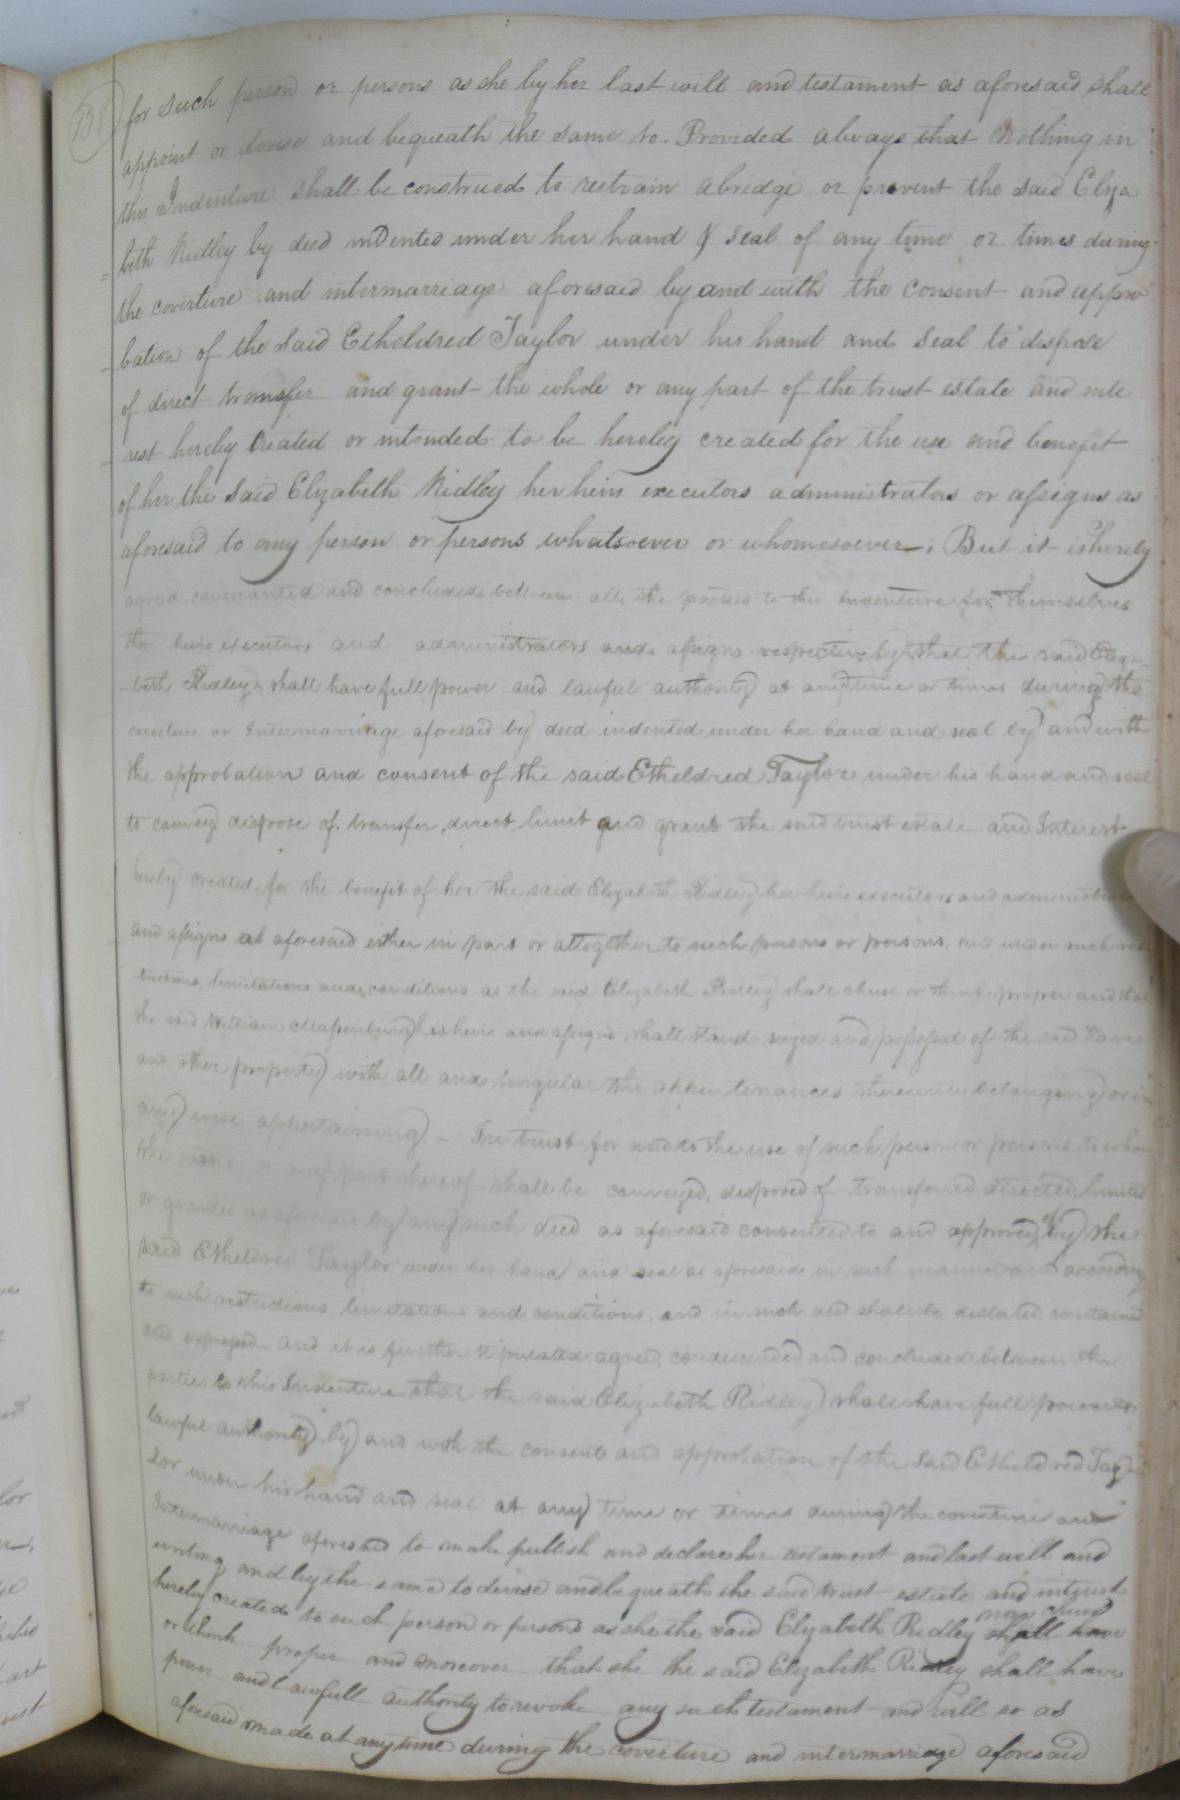 for such person or persons as she by her last will and testament as aforesaid shall
appoint or devise and bequeath the same to. Provided always that nothing in
this Indenture shall be construed to restrain abridge or prevent the said Eliza
= beth Ridley by deed indented under her hand & seal of any time or times during
the coverture and intermarriage aforesaid by and with the consent and appro
- bation of the said Etheldred Taylor under his hand and seal to dispose
of direct transfer and grant the whole or any part of the trust estate and inte
- rest hereby created or intended to be hereby created for the use and benefit
of her the said Elizabeth Ridley her heirs executors administrators or assigns as
aforesaid to any person or persons whatsoever or whomesoever; But it is hereby
agreed covenanted and concluded between all the parties to this indenture for themselves
their heirs executors and administrators and assigns respectively that the said Eliza-
-beth Ridley shall have full power and lawful authority at any time or times during the
coverture or Intermarriage aforesaid by deed indented under her hand and seal by and with
the approbation and consent of the said Etheldred Taylor under his hand and seal
to convey dispose of transfer, direct, limit and grant the said trust estate and Interest
hereby created for the benefit of her the said Elizabeth Ridley her heirs executors and administrators
and assigns as aforesaid either in part or altogether to such persons or persons, and under such res
trictions, limitations and conditions as the said Elizabeth Ridley shall chuse or think proper and that
the said William his heirs and assigns shall stand seized and possessed of the said
and other property with all and singular the appurtenances thereunto belonging or in
any wise appertaining. - In trust for and to the use of such person or persons to whom
the or any part thereof shall be conveyed, disposed of transferred directed, limited
or granted as aforesaid by any such deed as aforesaid consented to and approved of by the
said Etheldred Taylor under his hand and seal as aforesaid in such manner and according
to such restrictions, limitations and conditions, and in such deed shall be contained
and expressed and it is further stipulated agreed, condescended and concluded between the
parties to this Indenture that the said Elizabeth Ridley shall have full power &
lawful authority by and with the consent and approbation of the said Etheldred Tay-
lor under his hand and seal at any time or times during the coverture and
Intermarriage aforesaid to make publish and declare her testament and last will and
writing and by the same to devise and bequeath the said trust estate and interest
hereby created to such person or persons as she the said Elizabeth Ridley shall
or think proper and moreover that she the said Elizabeth Ridley shall have
power and lawfull authority to revoke any such testament and will so as
aforesaid made at any time during the coverture and intermarriage aforesaid